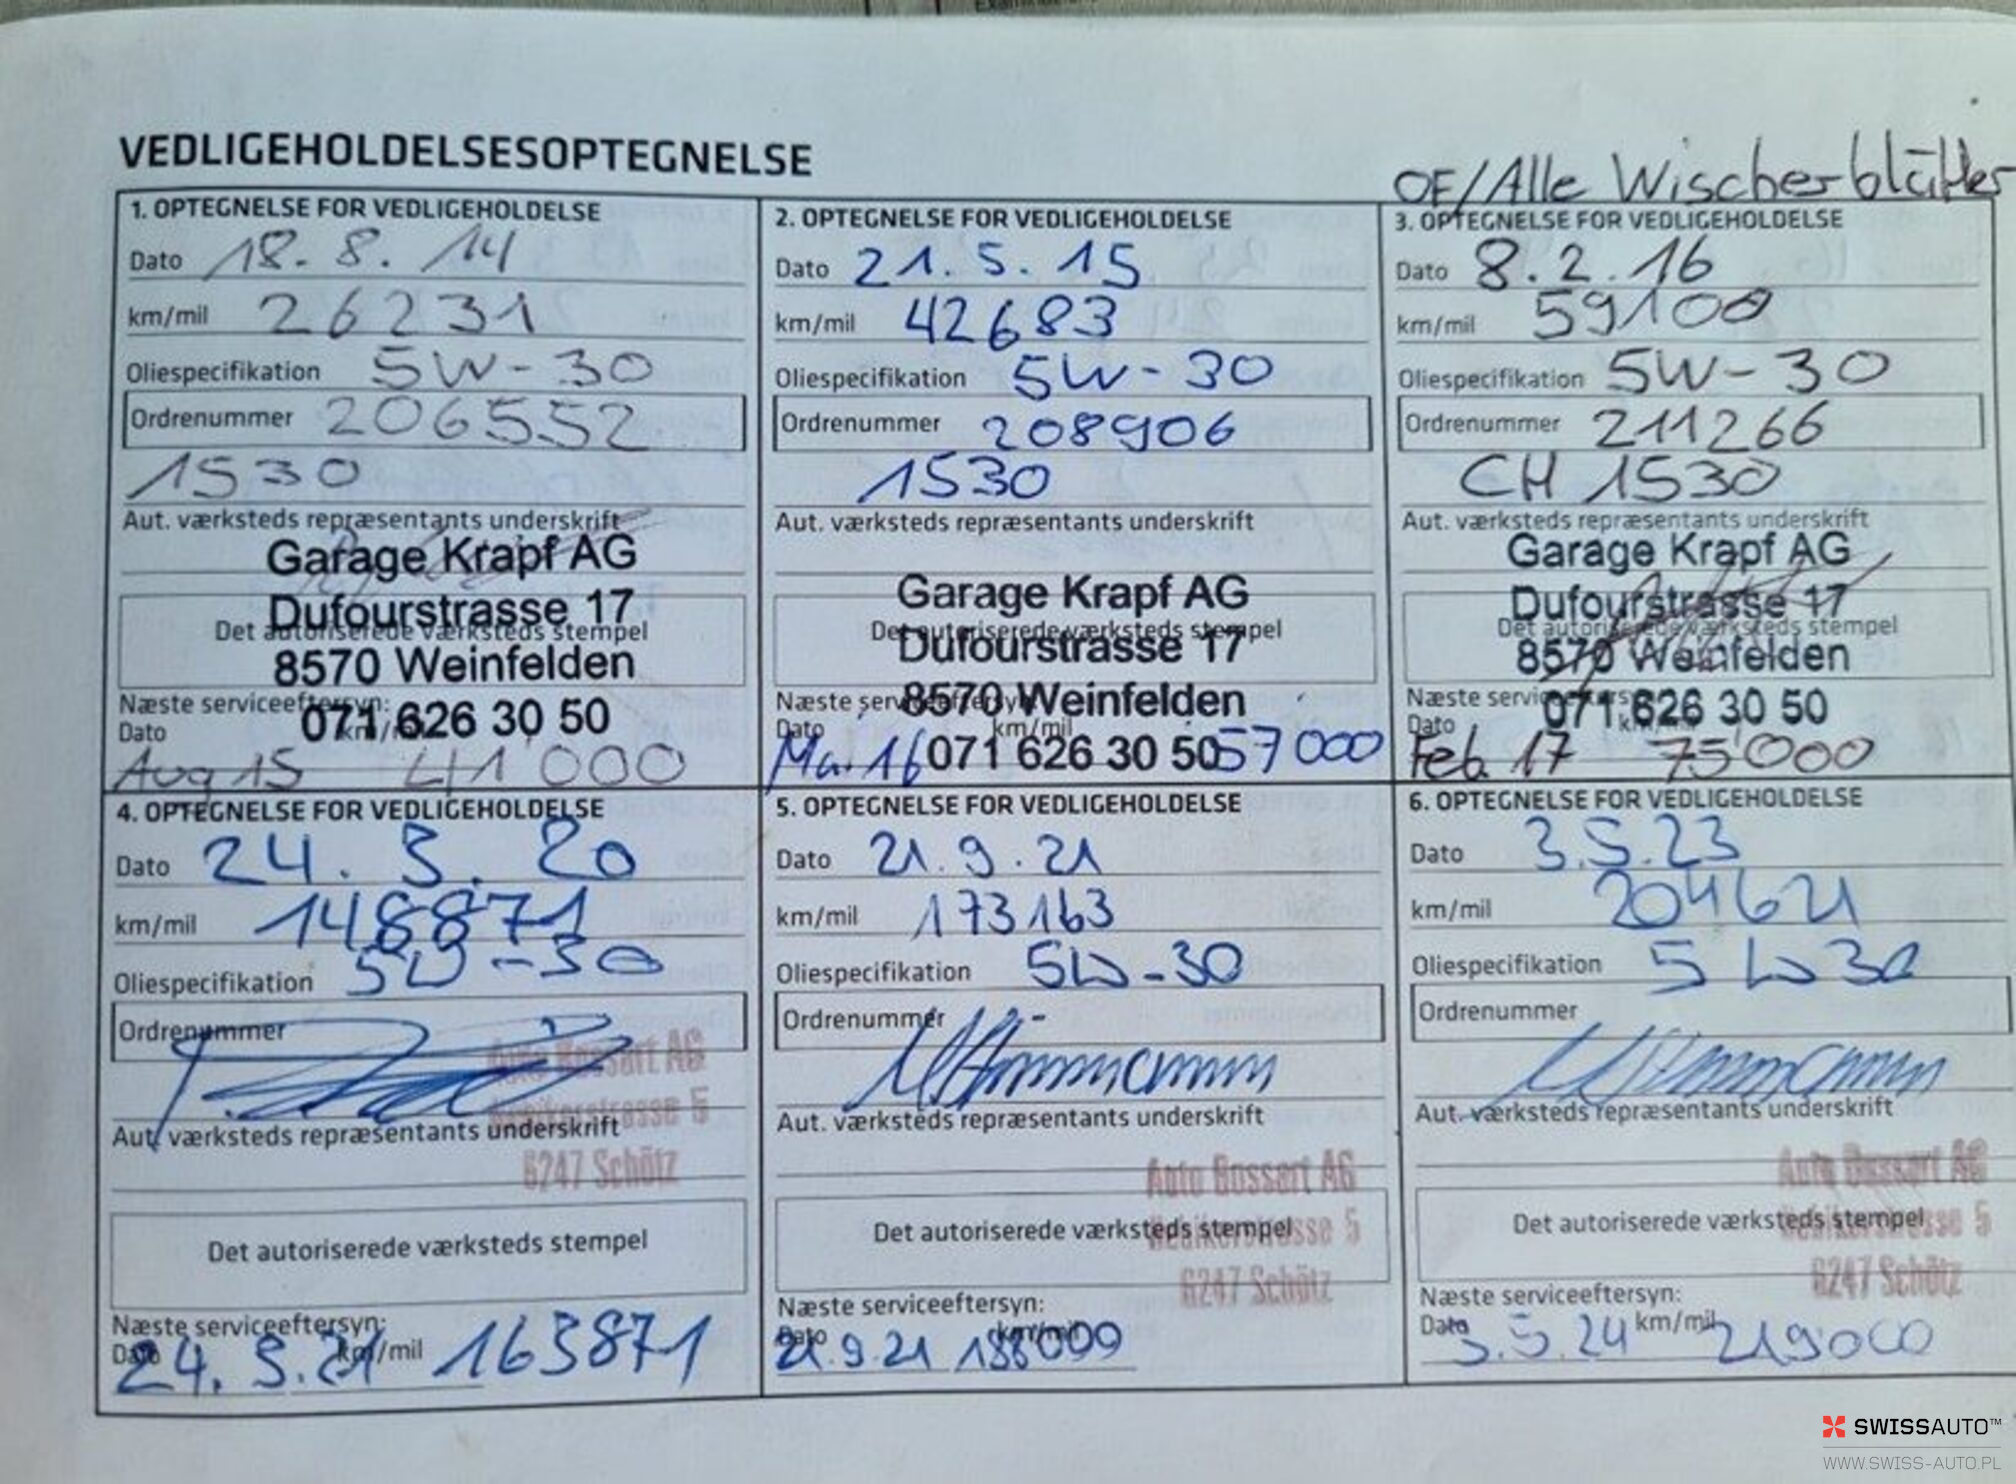 VEDLIGEHOLDELSESOPTEGNELSE
OF/Alle Wischerblätter
1. OPTEGNELSE FOR VEDLIGEHOLDELSE
Dato 18. 8. 14
km/mil 26231
Oliespecifikation 5W-30
Ordrenummer 206552
1530
Aut. værksteds repræsentants underskrift
Garage Krapf AG
Dufourstrasse 17
Det autoriserede værksteds stempel
8570 Weinfelden
Næste serviceeftersyn:
071 626 30 50
Dato km/mil
Aug 15 41'000
2. OPTEGNELSE FOR VEDLIGEHOLDELSE
Dato 21. 5. 15
km/mil 42683
Oliespecifikation 5W-30
Ordrenummer 208906
1530
Aut. værksteds repræsentants underskrift
Garage Krapf AG
Det autoriserede værksteds stempel
Dufourstrasse 17
Næste serviceeftersyn:
8570 Weinfelden
Dato km/mil
Mai 16 071 626 30 50 57000
3. OPTEGNELSE FOR VEDLIGEHOLDELSE
Dato 8. 2. 16
km/mil 59100
Oliespecifikation 5W-30
Ordrenummer 211266
CH 1530
Aut. værksteds repræsentants underskrift
Garage Krapf AG
Dufourstrasse 17
Det autoriserede værksteds stempel
8570 Weinfelden
Næste serviceeftersyn:
071 626 30 50
Dato km/mil
Feb. 17 75'000
4. OPTEGNELSE FOR VEDLIGEHOLDELSE
Dato 24. 3. 20
km/mil 148871
Oliespecifikation 5W-30
Ordrenummer
Auto Bossart AG
Nebikerstrasse 5
Aut. værksteds repræsentants underskrift
6247 Schötz
Det autoriserede værksteds stempel
Næste serviceeftersyn:
Dato km/mil
24. 3. 21 163871
5. OPTEGNELSE FOR VEDLIGEHOLDELSE
Dato 21. 9. 21
km/mil 173163
Oliespecifikation 5W-30
Ordrenummer -
Aut. værksteds repræsentants underskrift
Auto Bossart AG
Det autoriserede værksteds stempel
Nebikerstrasse 5
6247 Schötz
Næste serviceeftersyn:
Dato km/mil
21.9.21 188000
6. OPTEGNELSE FOR VEDLIGEHOLDELSE
Dato 3.5.23
km/mil 204621
Oliespecifikation 5W30
Ordrenummer
Aut. værksteds repræsentants underskrift
Auto Bossart AG
Det autoriserede værksteds stempel
Nebikerstrasse 5
6247 Schötz
Næste serviceeftersyn:
Dato km/mil
3.5.24 219000
SWISSAUTO™
WWW.SWISS-AUTO.PL